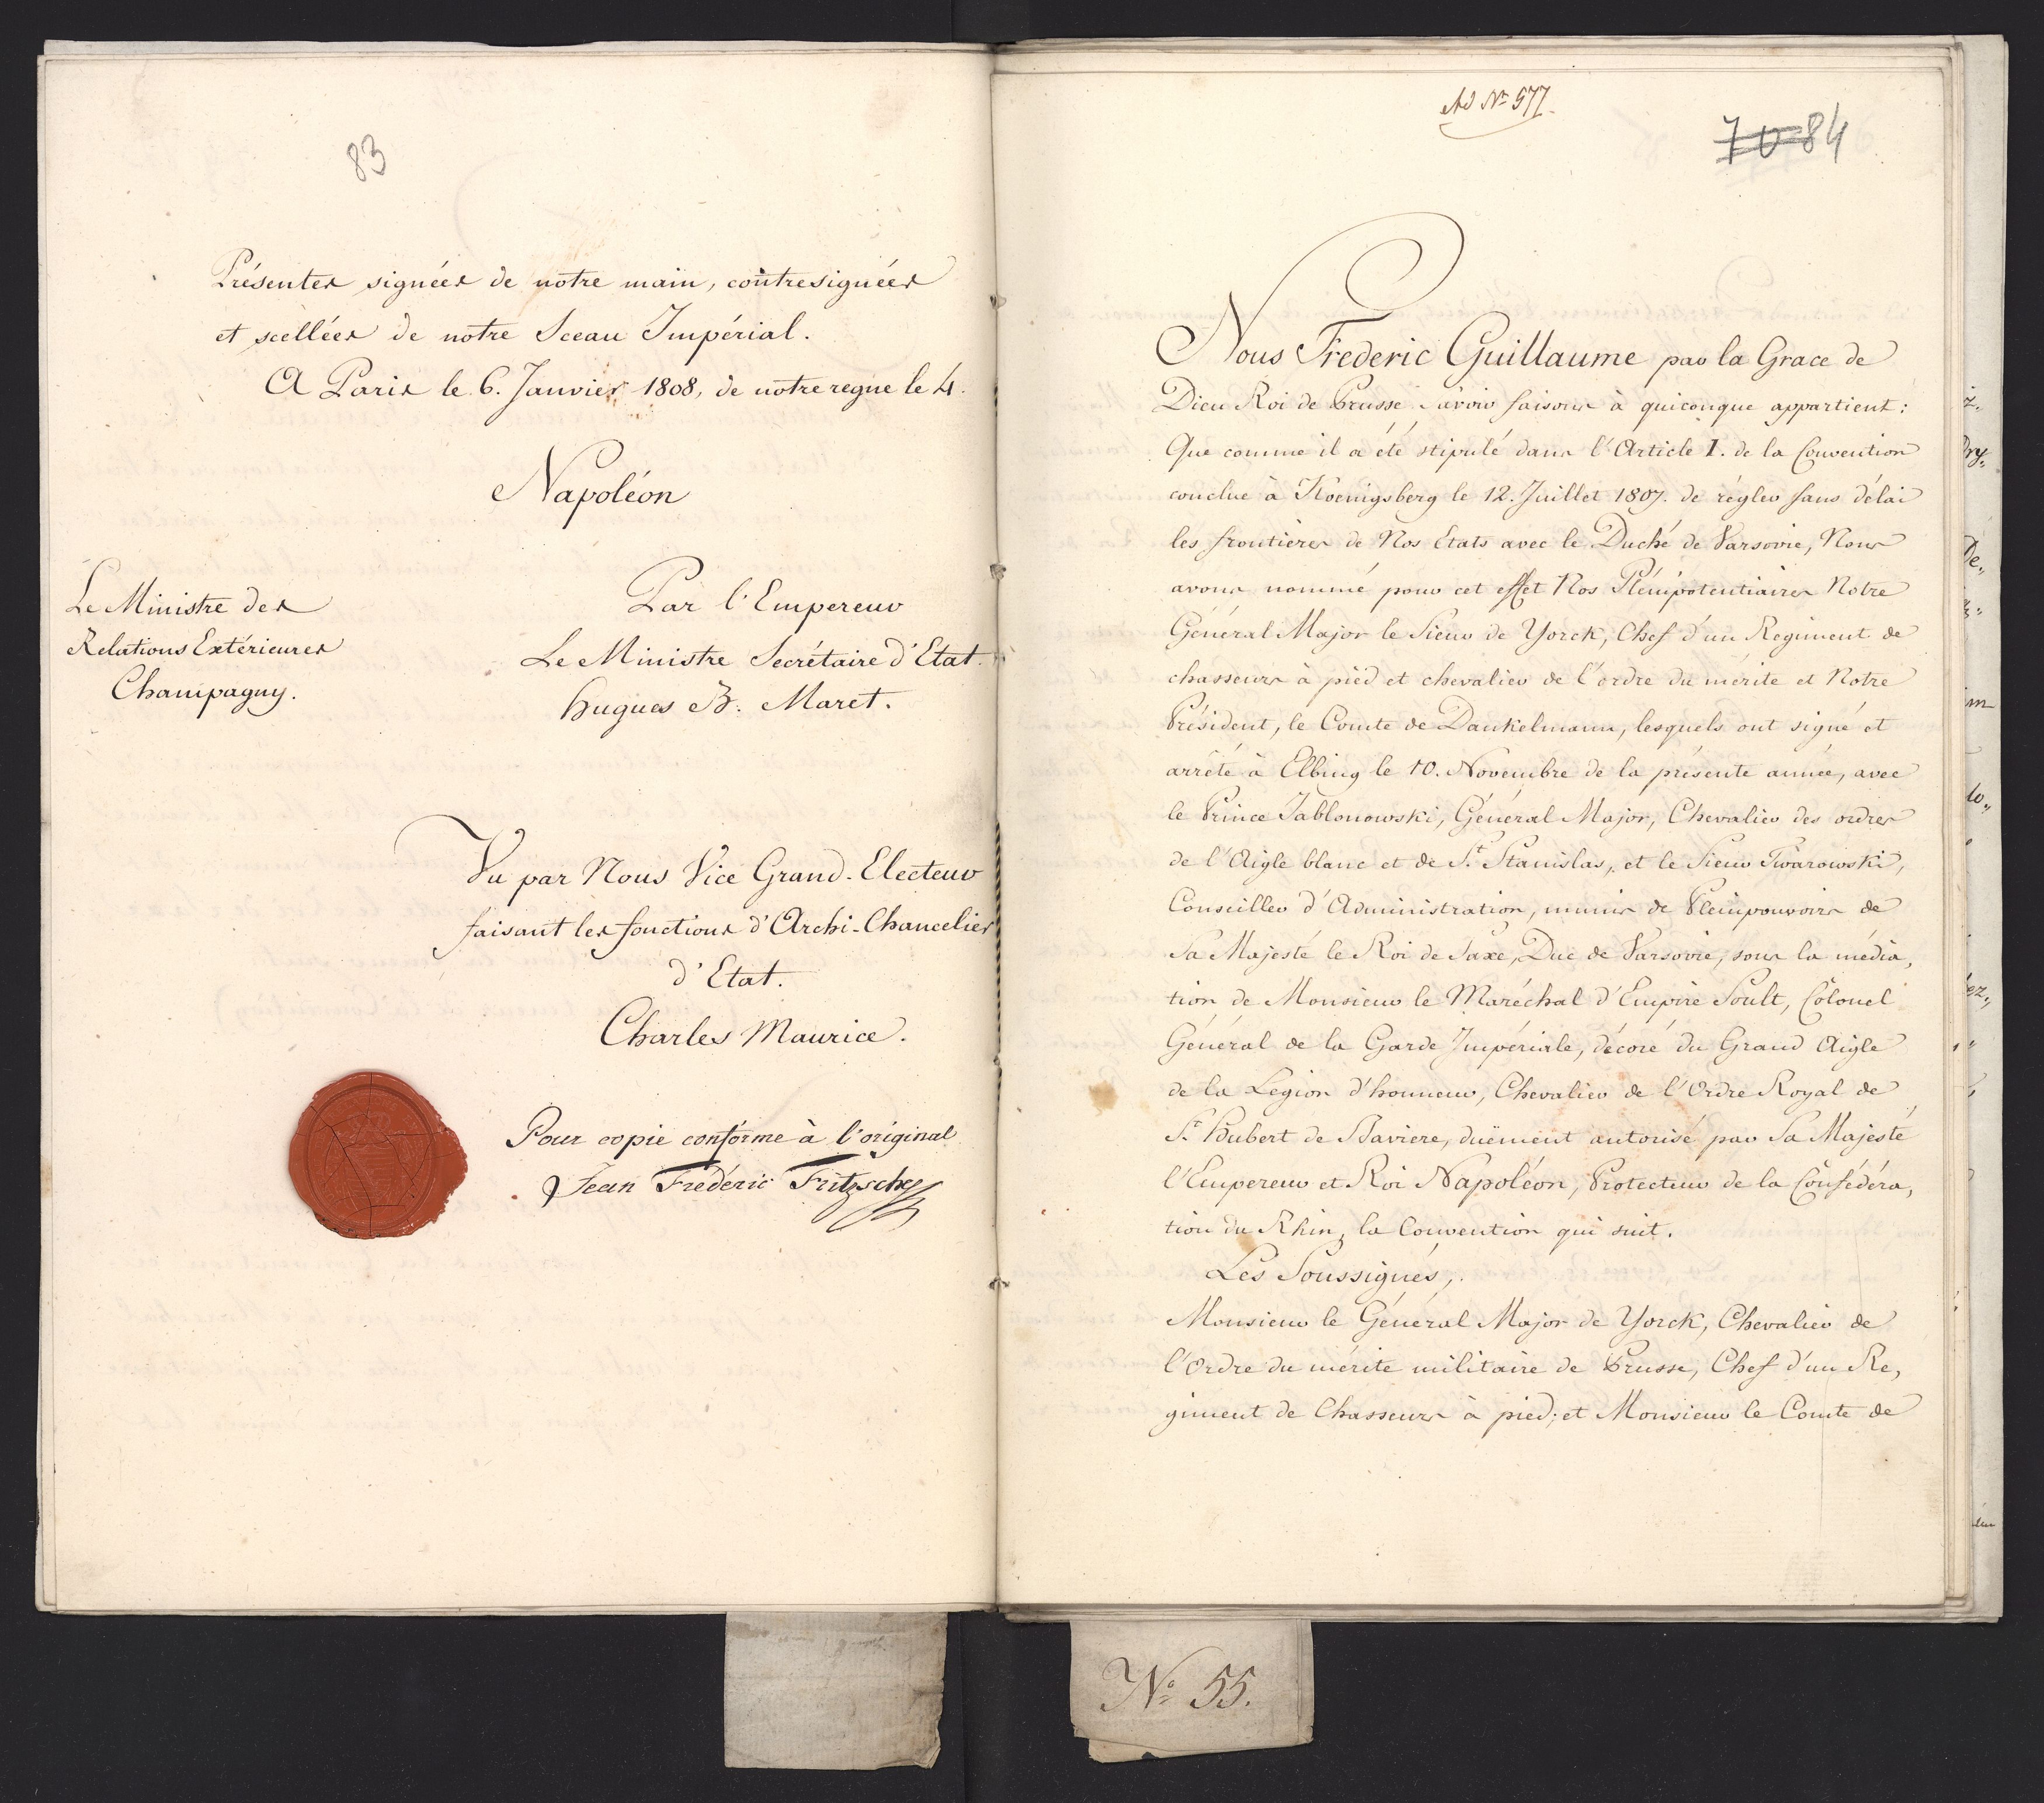 83
Présentes signées de notre main, contresignées
et scellées de notre Sceau Impérial.
A Paris le 6. Janvier 1808, de notre regne le 4.
Napoléon
Le Ministre des
Relations Extérieures
Champagny.
Par l'Empereur
Le Ministre Secrétaire d'Etat.
hugues B. Maret.
Vu par Nous Vice Grand-Electeur
faisant les fonctions d'Archi-Chancelier
d'Etat.
Charles Maurice.
Pour copie conforme à l'original
Jean Fréderic Fritzsche
Ad Nr. 577.
70 84
Nous Frederic Guillaume par la Grace de
Dieu Roi de Prusse savoir faisons à quiconque appartient:
Que comme il a été stipulé dans l'Article I. de la Convention
conclue à Koenigsberg le 12. Juillet 1807. de régler sans délai
les frontieres de Nos Etats avec le Duché de Varsovie, Nous
avons nommé pour cet effet Nos Plénipotentiaires Notre
Général Major le Sieur de Yorck, Chef d'un Regiment de
chasseurs à pied et chevalier de l'ordre du mérite et Notre
Président, le Comte de Dankelmann, lesquels ont signé et
arrêté à Elbing le 10. Novembre de la présente année, avec
le Prince Jablonowski, Général Major, Chevalier des ordres
de l'Aigle blanc et de St. Stanislas, et le Sieur Twarowski,
Conseiller d'Administration, munis de Pleinpouvoirs de
Sa Majesté le Roi de Saxe, Duc de Varsovie, sous la média,
tion de Monsieur le Maréchal d'Empire Soult, Colonel
Général de la Garde Impériale, décoré du Grand Aigle
de la Legion d'honneur, Chevalier de l'Ordre Royal de
St. Hubert de Baviere, duëment autorisé par Sa Majesté
l'Empereur et Roi Napoléon, Protecteur de la Confédéra,
tion du Rhin, la Convention qui suit.
Les Soussignés,
Monsieur le Général Major de Yorck, Chevalier de
l'Ordre du mérite militaire de Prusse, Chef d'un Re,
giment de Chasseurs à pied; et Monsieur le Comte de
No. 55.